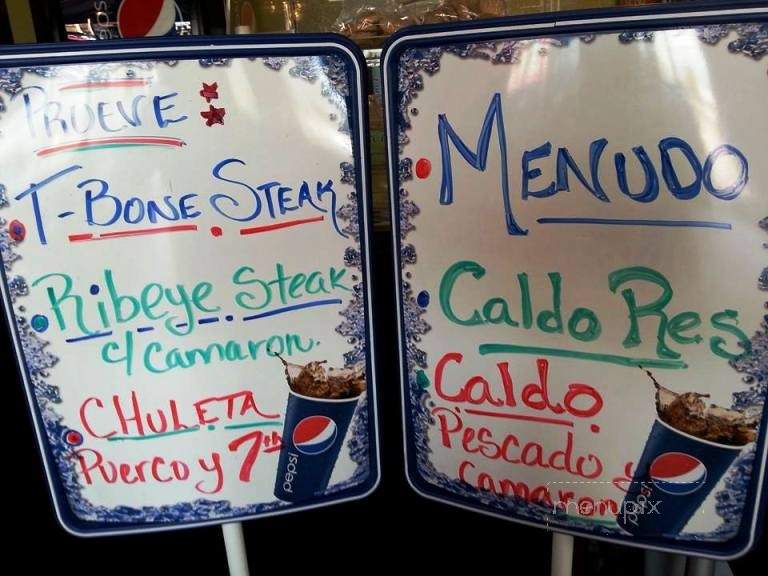 PRUEVE
T-BONE STEAK
Ribeye Steak
c/ camaron.
CHULETA
Puerco y 7th
pepsi
MENUDO
Caldo Res
Caldo
Pescado y
camaron
pepsi
menupix